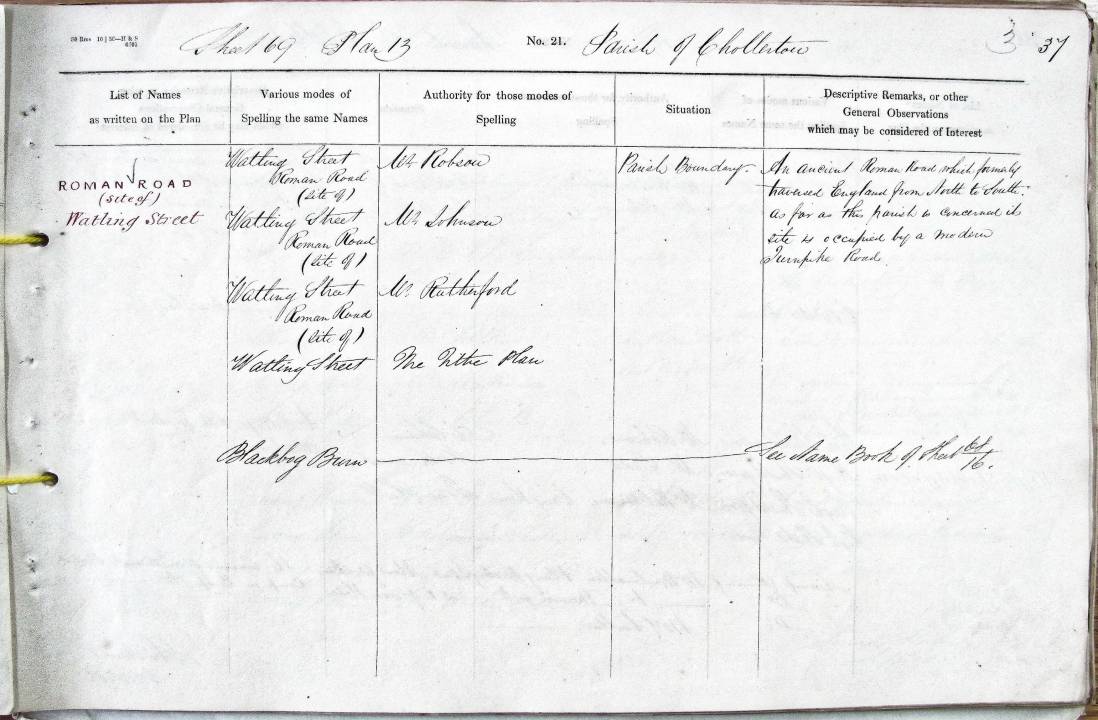 Sheet 69 Plan 13 No. 21. Parish of Chollerton 3 37
List of Names
as written on the Plan
Various modes of
Spelling the same Names
Authority for those modes of
Spelling
Situation
Descriptive Remarks, or other
General Observations
which may be considered of Interest
ROMAN ROAD
(site of)
Watling Street
Watling Street
Roman Road
(site of)
Mr. Robson
Parish Boundary.
An ancient Roman Road which formerly
traversed England from North to South:
as far as this parish is concerned its
site is occupied by a modern
Turnpike Road
Watling Street
Roman Road
(site of)
Mr. Johnson
Watling Street
Roman Road
(site of)
Mr. Rutherford
Watling Street
The Tithe Plan
Blackbog Burn
See Name Book of Sheet 69/16.